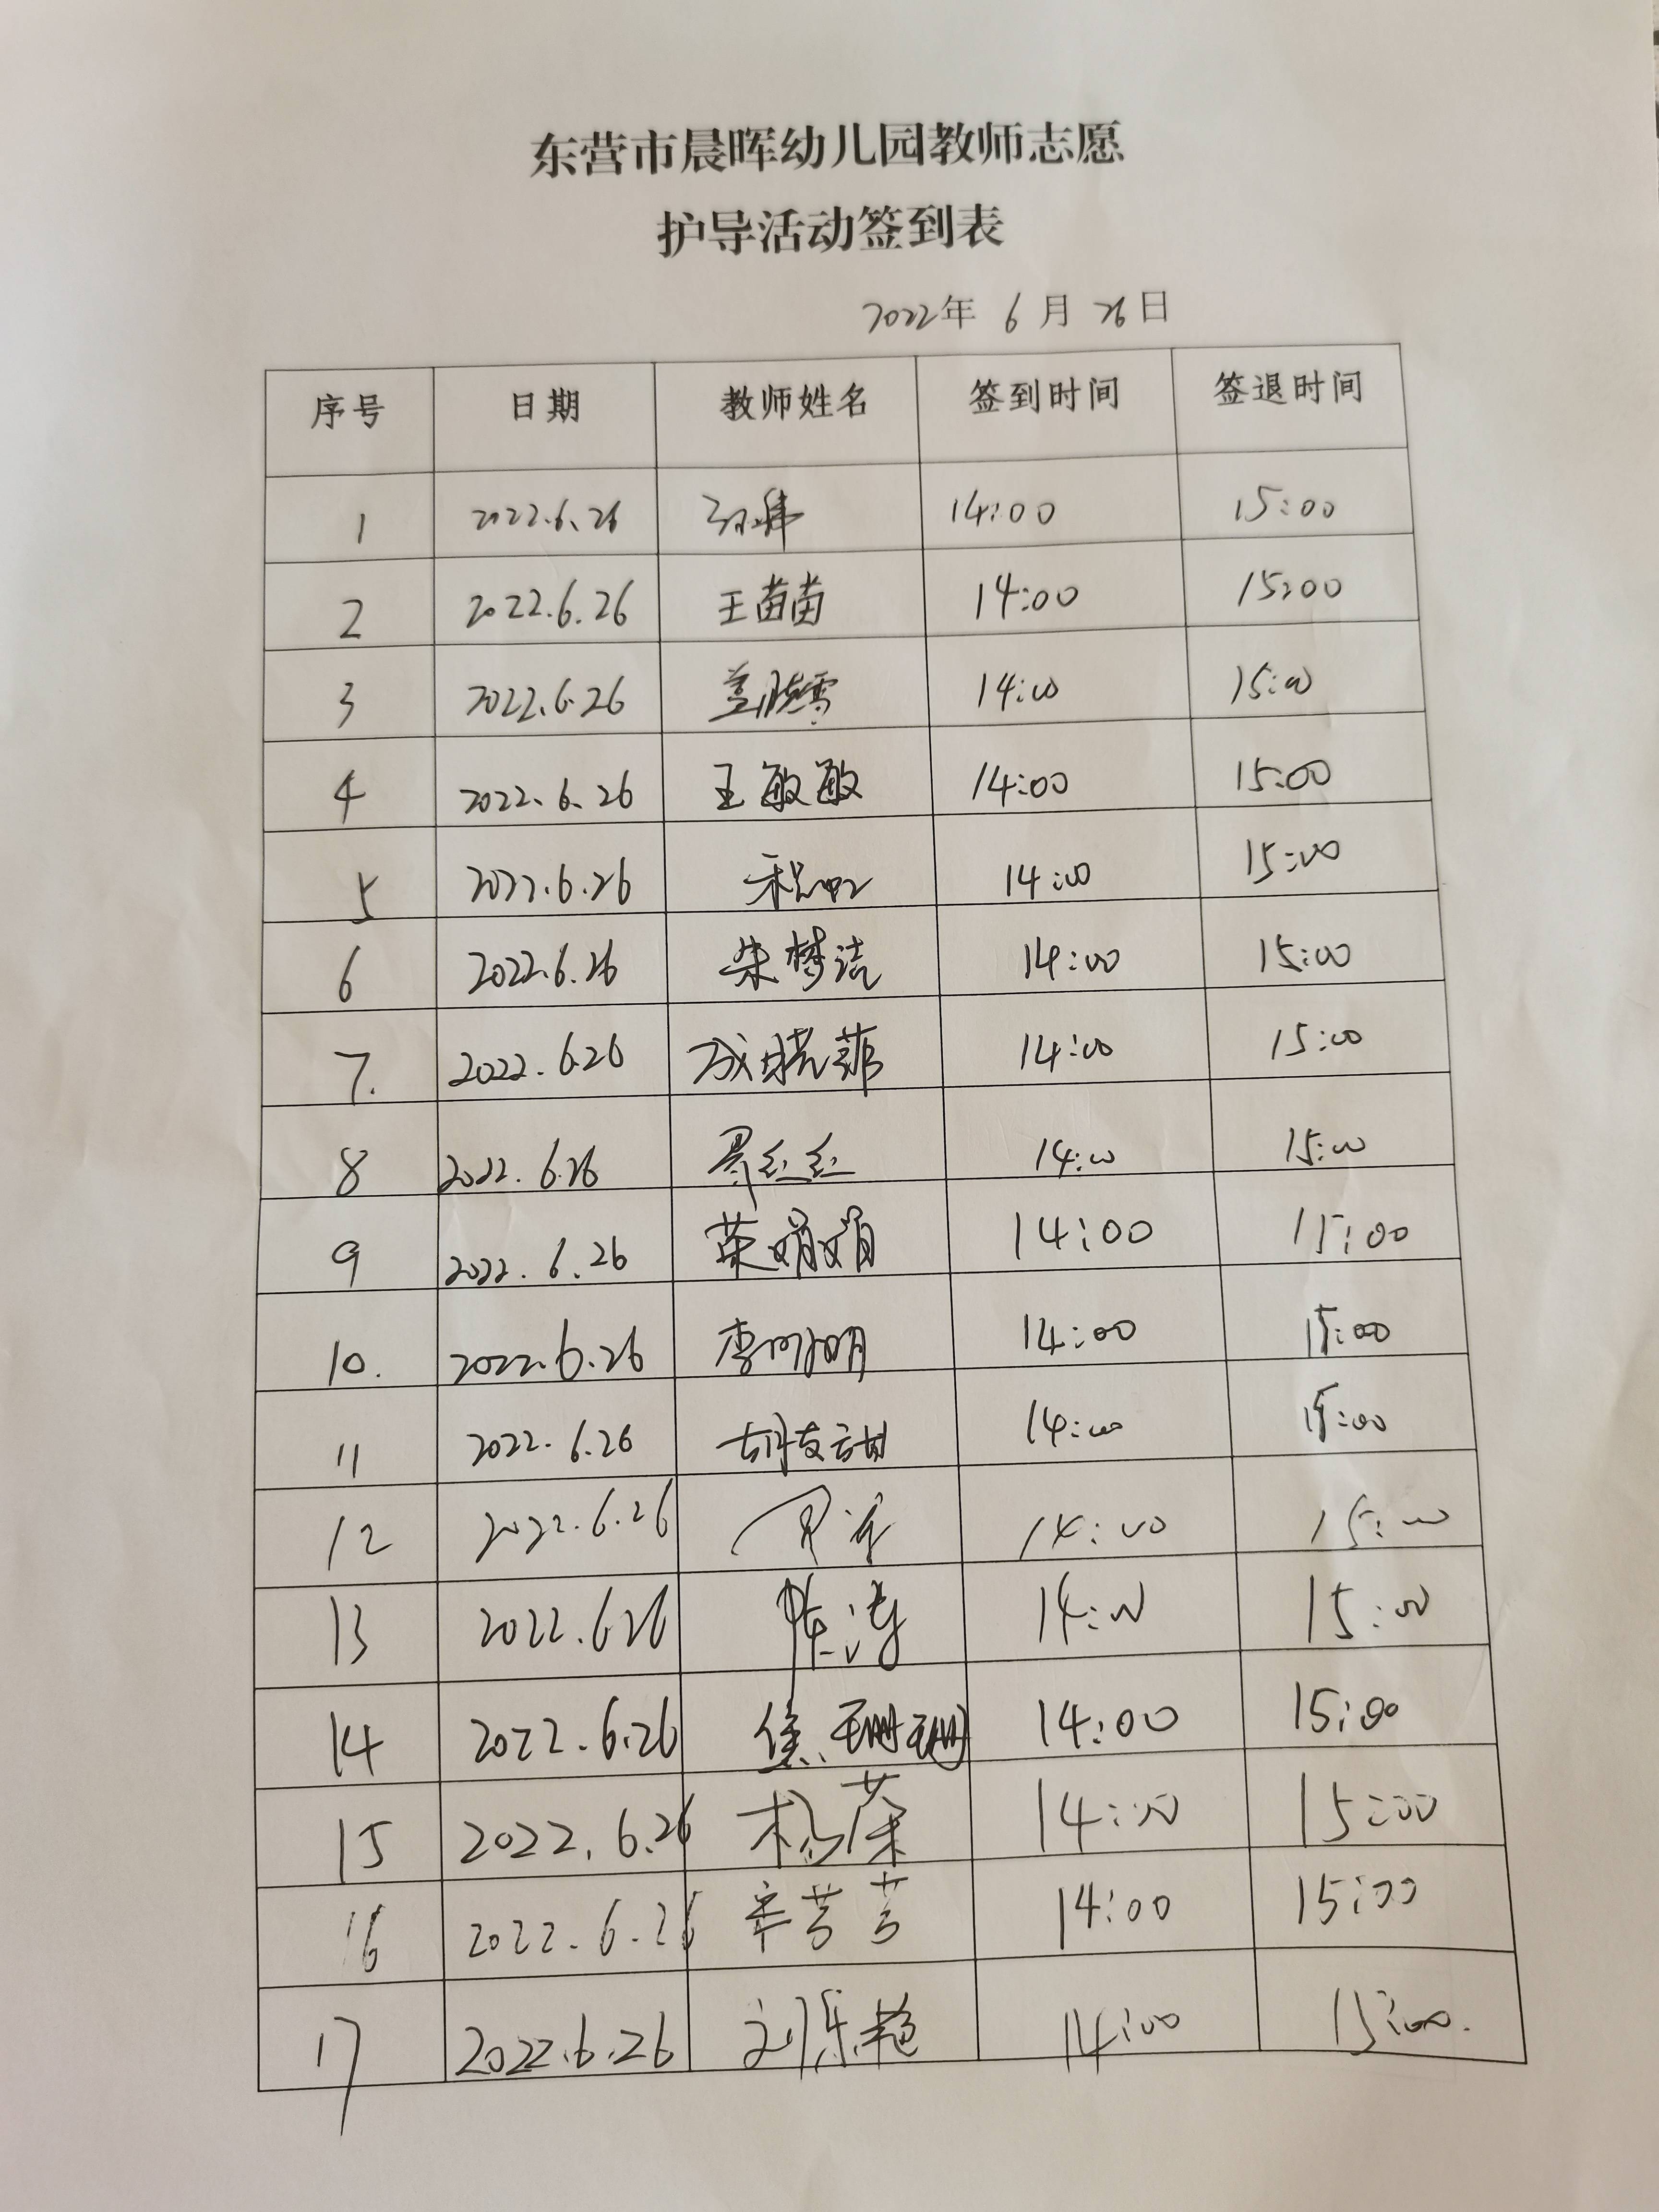 东营市晨晖幼儿园教师志愿
护导活动签到表
2022年 6月 26日
序号 日期 教师姓名 签到时间 签退时间
1 2022.6.26 14:00 15:00
2 2022.6.26 王苗苗 14:00 15:00
3 2022.6.26 14:00 15:00
4 2022.6.26 王敏敏 14:00 15:00
5 2022.6.26 14:00 15:00
6 2022.6.26 朱梦洁 14:00 15:00
7. 2022.6.26 成晓菲 14:00 15:00
8 2022.6.26 14:00 15:00
9 2022.6.26 荣娟娟 14:00 15:00
10. 2022.6.26 14:00 15:00
11 2022.6.26 14:00 15:00
12 2022.6.26 14:00 15:00
13 2022.6.26 陈涛 14:00 15:00
14 2022.6.26 侯珊珊 14:00 15:00
15 2022.6.26 杨荣 14:00 15:00
16 2022.6.26 辛芳芳 14:00 15:00
17 2022.6.26 刘乐艳 14:00 15:00.